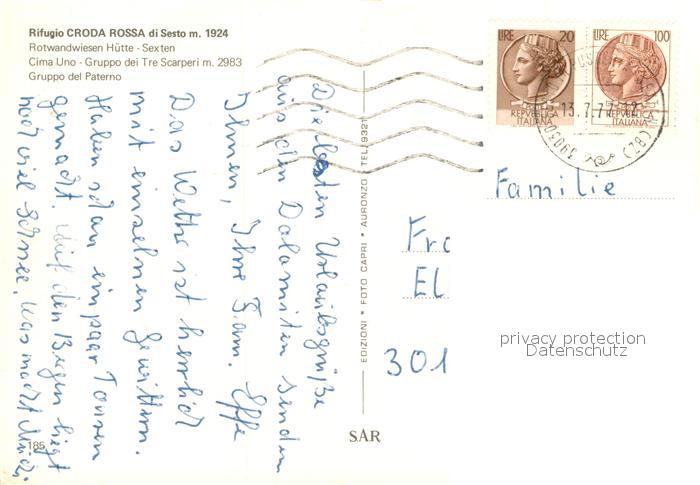 Rifugio CRODA ROSSA di Sesto m. 1924
Rotwandwiesen Hütte - Sexten
Cima Uno - Gruppo dei Tre Scarperi m. 2983
Gruppo del Paterno
LIRE 20
REPVBBLICA
ITALIANA
LIRE 100
REPVBBLICA
ITALIANA
13.7.77-12
39030
(BZ)
Die besten Urlaubsgrüße
aus den Dolomiten senden
Ihnen, Ihre Fam. Effe
Das Wetter ist herrlich
mit einzelnen Gewittern.
Haben schon ein paar Touren
gemacht. Auf den Bergen liegt
noch viel Schnee. Was macht
EDIZIONI • FOTO CAPRI • AURONZO • TEL. 9321
Familie
Fra
El
301
privacy protection
Datenschutz
185
SAR